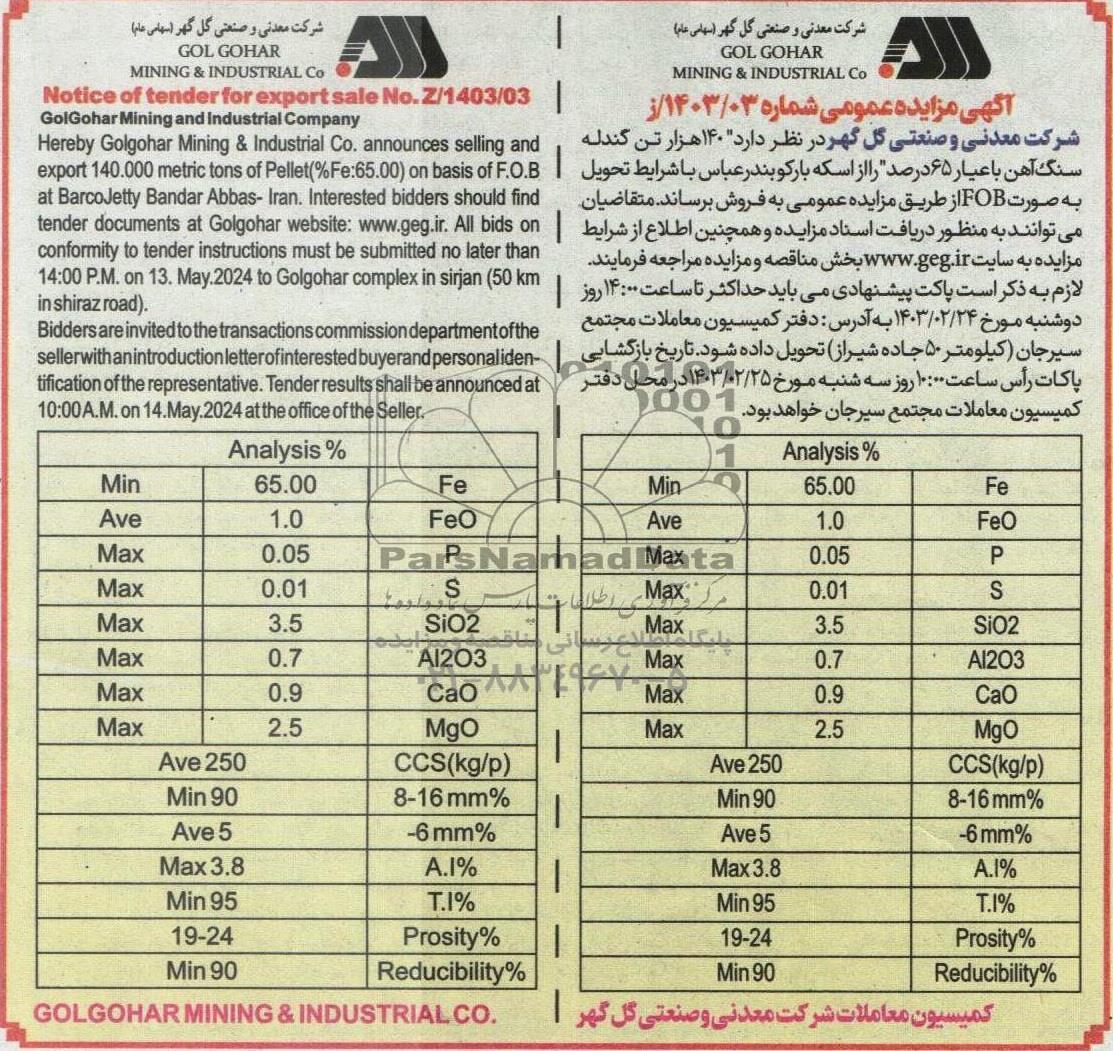 شرکت معدنی و صنعتی گل گهر (سهامی عام)
GOL GOHAR
MINING & INDUSTRIAL Co
Notice of tender for export sale No. Z/1403/03
GolGohar Mining and Industrial Company
Hereby Golgohar Mining & Industrial Co. announces selling and
export 140.000 metric tons of Pellet(%Fe:65.00) on basis of F.O.B
at BarcoJetty Bandar Abbas- Iran. Interested bidders should find
tender documents at Golgohar website: www.geg.ir. All bids on
conformity to tender instructions must be submitted no later than
14:00 P.M. on 13. May.2024 to Golgohar complex in sirjan (50 km
in shiraz road).
Bidders are invited to the transactions commission department of the
seller with an introduction letter of interested buyer and personal iden-
tification of the representative. Tender results shall be announced at
10:00 A.M. on 14.May.2024 at the office of the Seller.
Analysis %
Min 65.00 Fe
Ave 1.0 FeO
Max 0.05 P
Max 0.01 S
Max 3.5 SiO2
Max 0.7 Al2O3
Max 0.9 CaO
Max 2.5 MgO
Ave 250 CCS(kg/p)
Min 90 8-16 mm%
Ave 5 -6 mm%
Max 3.8 A.I%
Min 95 T.I%
19-24 Prosity%
Min 90 Reducibility%
GOLGOHAR MINING & INDUSTRIAL CO.
شرکت معدنی و صنعتی گل گهر (سهامی عام)
GOL GOHAR
MINING & INDUSTRIAL Co
آگهی مزایده عمومی شماره ۱۴۰۳/۰۳/ز
شرکت معدنی و صنعتی گل گهر در نظر دارد "۱۴۰هزار تن گندله
سنگ‌آهن با عیار ۶۵درصد" را از اسکه بارکو بندرعباس با شرایط تحویل
به صورت FOB از طریق مزایده عمومی به فروش برساند. متقاضیان
می توانند به منظور دریافت اسناد مزایده و همچنین اطلاع از شرایط
مزایده به سایت www.geg.ir بخش مناقصه و مزایده مراجعه فرمایند.
لازم به ذکر است پاکت پیشنهادی می باید حداکثر تا ساعت ۱۴:۰۰ روز
دوشنبه مورخ ۱۴۰۳/۰۲/۲۴ به آدرس : دفتر کمیسیون معاملات مجتمع
سیرجان (کیلومتر ۵۰ جاده شیراز) تحویل داده شود. تاریخ بازگشایی
پاکات رأس ساعت ۱۰:۰۰ روز سه شنبه مورخ ۱۴۰۳/۰۲/۲۵ در محل دفتر
کمیسیون معاملات مجتمع سیرجان خواهد بود.
Analysis %
Min 65.00 Fe
Ave 1.0 FeO
Max 0.05 P
Max 0.01 S
Max 3.5 SiO2
Max 0.7 Al2O3
Max 0.9 CaO
Max 2.5 MgO
Ave 250 CCS(kg/p)
Min 90 8-16 mm%
Ave 5 -6 mm%
Max 3.8 A.I%
Min 95 T.I%
19-24 Prosity%
Min 90 Reducibility%
کمیسیون معاملات شرکت معدنی و صنعتی گل گهر
ParsNamadData
مرکز فرآوری اطلاعات پارس نماد داده ها
پایگاه اطلاع رسانی مناقصه و مزایده
۰۲۱-۸۸۳۴۹۶۷۰-۵